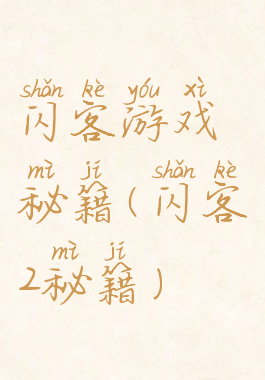 shǎn kè yóu xì
闪客游戏
mì jí shǎn kè
秘籍(闪客
mì jí
2秘籍)